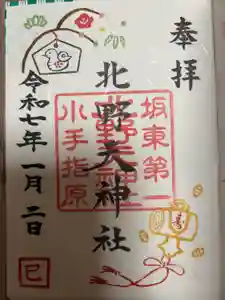 奉拝
坂東第一
北野天神社
小手指原
令和七年一月二日
巳
寿